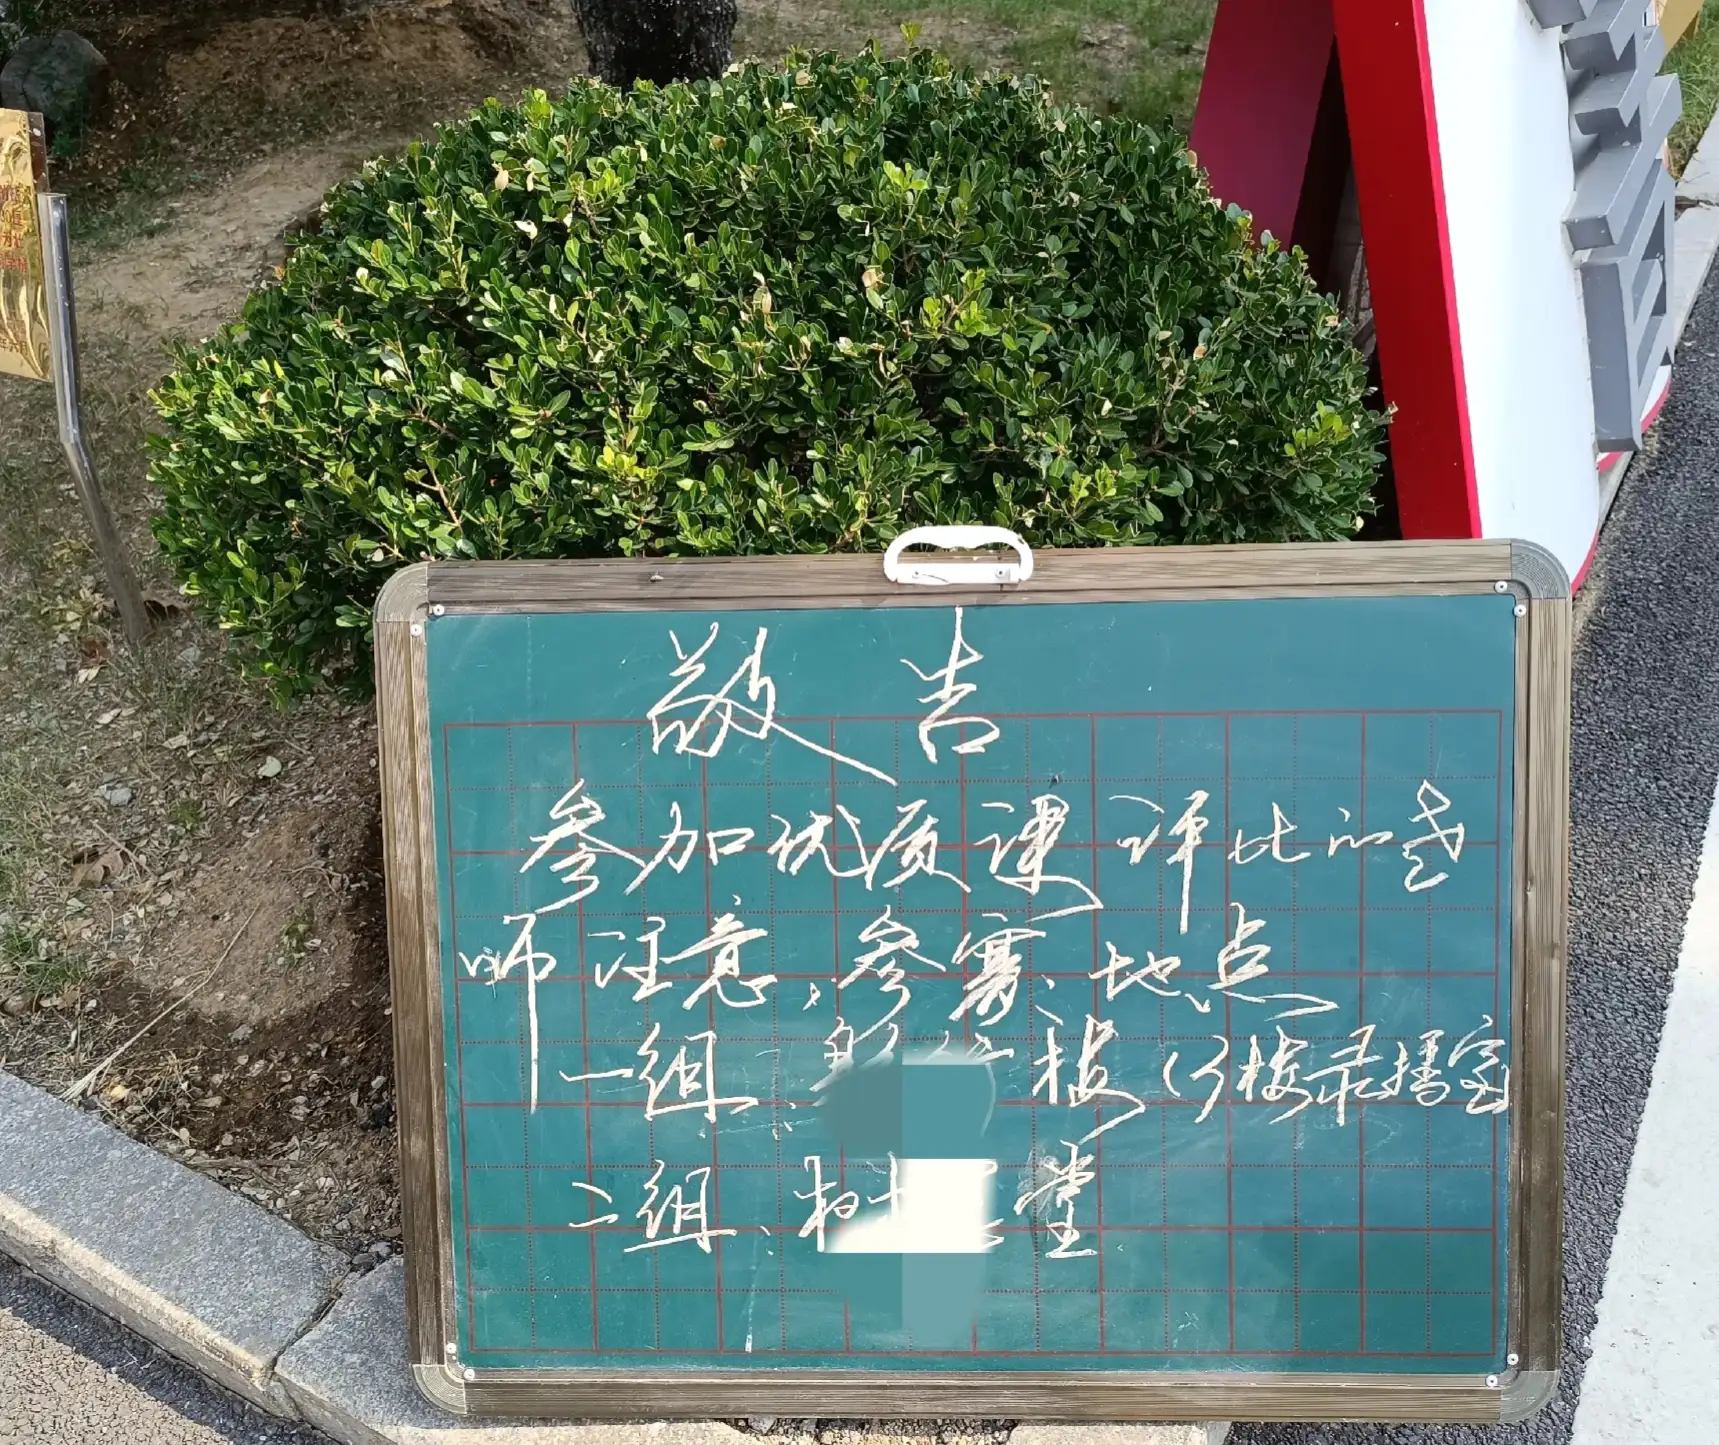 敬告
参加优质课评比的老
师注意,参赛地点
一组、楼(3楼录播室
二组、树堂